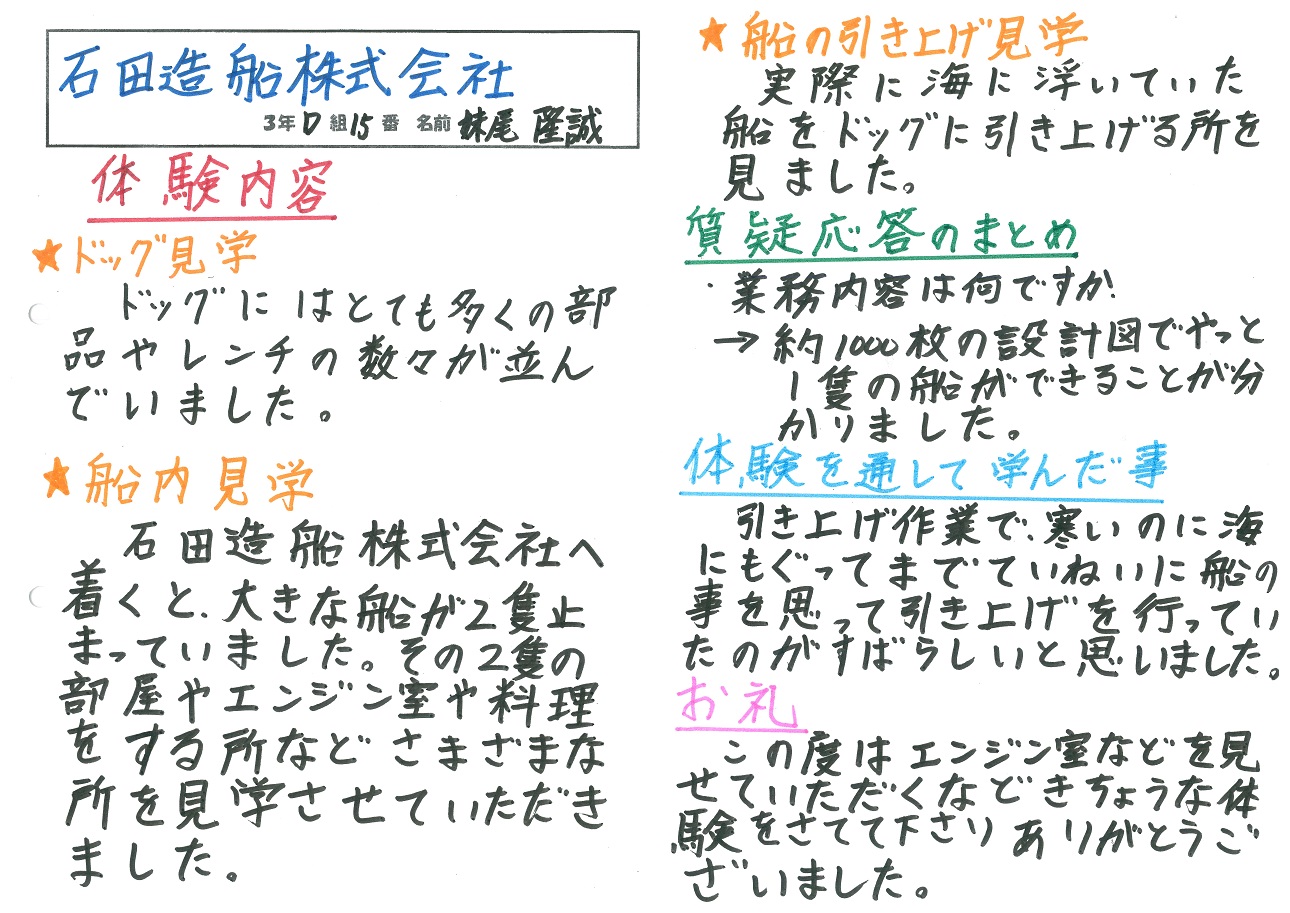 石田造船株式会社
3年D組15番 名前 妹尾 隆誠
体験内容
★ドッグ見学
ドッグにはとても多くの部
品やレンチの数々が並ん
でいました。
★船内見学
石田造船株式会社へ
着くと、大きな船が2隻止
まっていました。その2隻の
部屋やエンジン室や料理
をする所などさまざまな
所を見学させていただき
ました。
★船の引き上げ見学
実際に海に浮いていた
船をドッグに引き上げる所を
見ました。
質疑応答のまとめ
・業務内容は何ですか。
→約1000枚の設計図でやっと
1隻の船ができることが分
かりました。
体験を通して学んだ事
引き上げ作業で、寒いのに海
にもぐってまでていねいに船の
事を思って引き上げを行ってい
たのがすばらしいと思いました。
お礼
この度はエンジン室などを見
せていただくなどきちょうな体
験をさてて下さりありがとうご
ざいました。